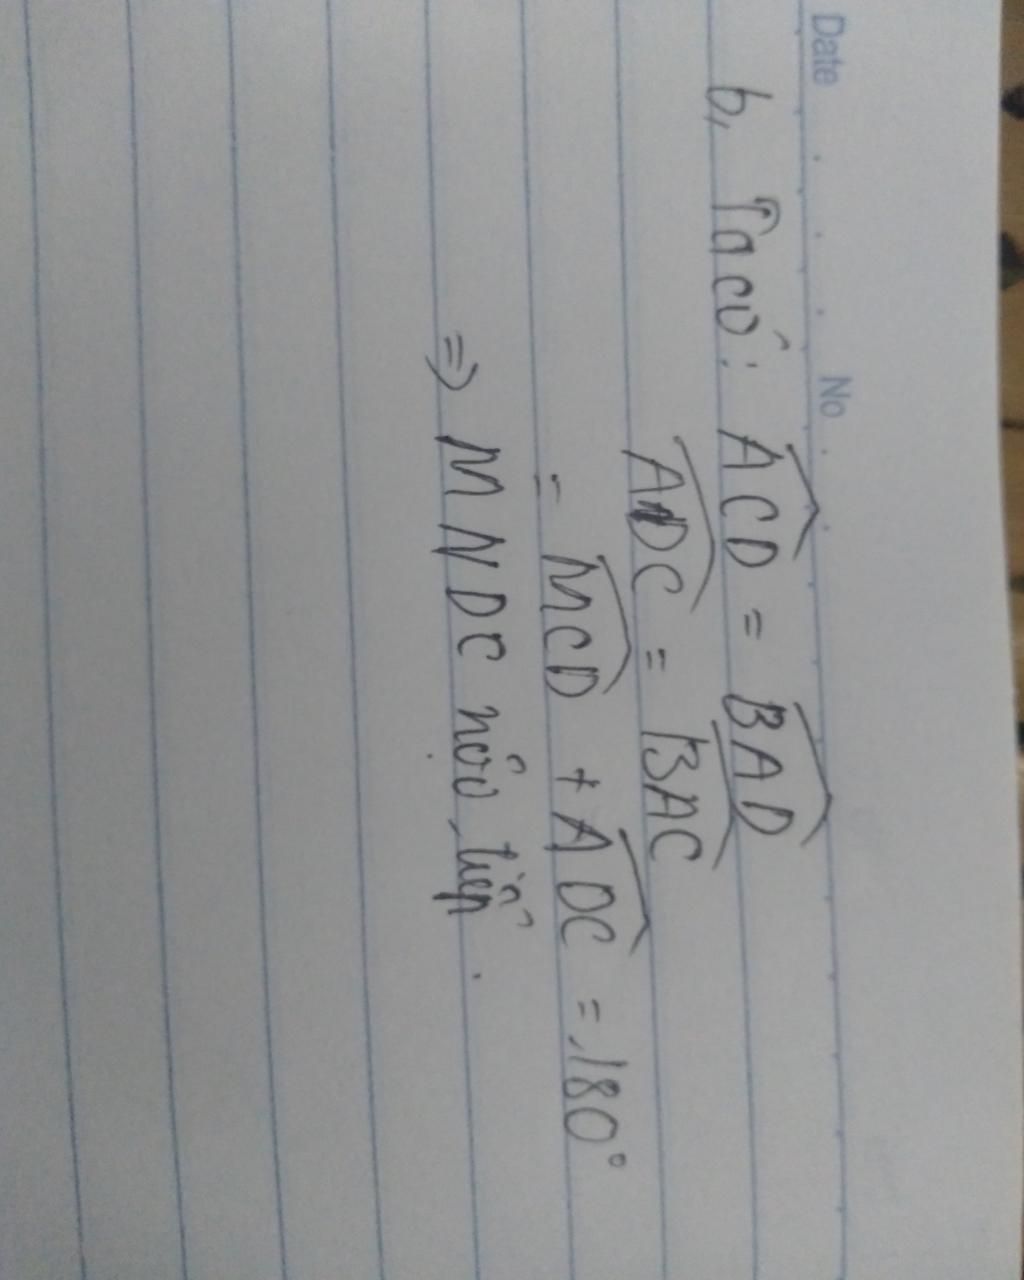 Date No
b, Ta có: ACD = BAD
ADC = BAC
= MCD + ADC = 180°
=> MNDC nội tiếp.